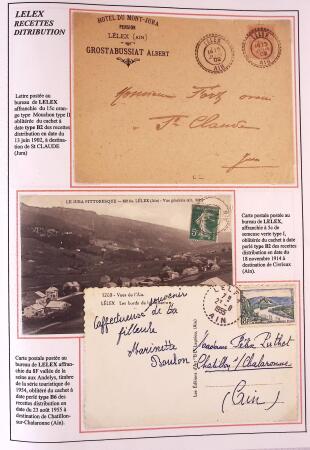 LELEX
RECETTES
DITRIBUTION
Lettre postée au
bureau de LELEX
affranchie du 15c oran-
ge type Mouchon type II
oblitérée du cachet à
date type B2 des recettes
distribution en date du
13 juin 1902, à destination
de St CLAUDE
(Jura)
HOTEL DU MONT-JURA
PENSION
LÉLEX (AIN)
GROSTABUSSIAT ALBERT
LELEX
02
AIN
LELEX
02
AIN
Monsieur
St Claude
Jura
Carte postale postée au
bureau de LELEX,
affranchie à 5c de
semeuse verte type I,
oblitérée du cachet à
date perlé type B2 des
recettes distribution en
date du
18 novembre 1914 à
destination de Civrieux
(Ain).
LE JURA PITTORESQUE
LÉLEX (Ain) - Vue générale
5
Carte postale postée au
bureau de LELEX affran-
chie du 8F vallée de la
seine aux Andelys, timbre
de la série touristique de
1954, oblitéré du cachet à
date perlé type B6 des
recettes distribution en
date du 23 août 1955 à
destination de Chatillon-
sur-Chalaronne (Ain).
Vues de l'Ain
LÉLEX
Affectueux souvenir
de ta
filleule
Marinette
LELEX
1955
AIN
Madame
Chatillon s/Chalaronne
(Ain)